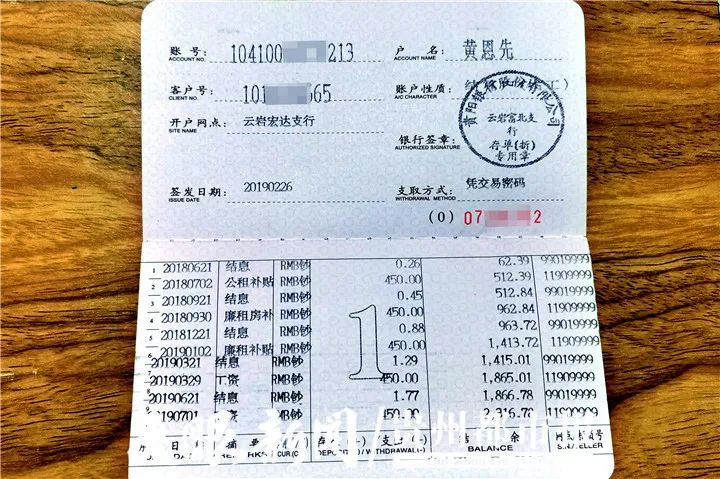 账 号: 10410 213 户 名: 黄恩先
ACCOUNT NO. ACCOUNT NAME
客户号: 101 565 账户性质:
CLIENT NO. A/C CHARACTER
开户网点: 云岩宏达支行
SITE NAME
贵阳银行股份有限公司
云岩富北支
行
存单(折)
专用章
银行签章:
AUTHORIZED SIGNATURE
签发日期: 20190226 支取方式: 凭交易密码
ISSUE DATE WITHDRAWAL METHOD
(0) 07 2
1 20180621 结息 RMB钞 0.26 62.39 99019999
2 20180702 公租补贴 RMB钞 450.00 512.39 11909999
3 20180921 结息 RMB钞 0.45 512.84 99019999
4 20180930 廉租房补 RMB钞 450.00 962.84 11909999
5 20181221 结息 RMB钞 0.88 963.72 99019999
6 20190102 廉租补贴 RMB钞 450.00 1,413.72 11909999
20190321 结息 RMB钞 1.29 1,415.01 99019999
20190329 工资 RMB钞 450.00 1,865.01 11909999
20190621 结息 RMB钞 1.77 1,866.78 99019999
20190701 资 RMB钞 450.00 2,316.78 11909999
1
支出(-) 结 余
WITHDRAWAL(-) BALANCE